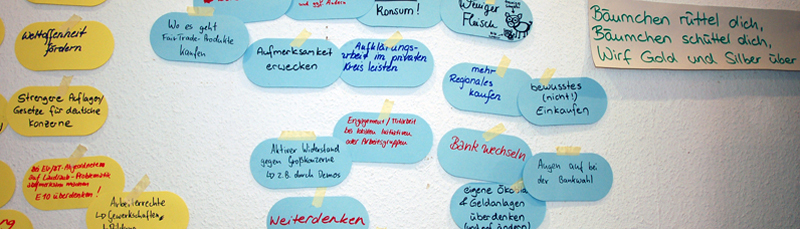 Weltoffenheit
fördern
Strengere Auflagen/
Gesetze für deutsche
Konzerne
auf Landraub-Problematik
aufmerksam machen
E10 überdenken!
Arbeiterrechte
↳ Gewerkschaften,
Wo es geht
FairTrade-Produkte
kaufen
und auf
Aufmerksamkeit
erwecken
Konsum!
Aufklärungs-
arbeit im privaten
Kreis leisten
Weniger
Fleisch
mehr
Regionales
kaufen
bewusstes
(nicht!)
Einkaufen
Engagement/Mitarbeit
bei lokalen Initiativen
oder Arbeitsgruppen
Aktiver Widerstand
gegen Großkonzerne
↳ z.B. durch Demos
Weiterdenken
Bank wechseln
Augen auf bei
der Bankwahl
eigene
& Geldanlagen
überdenken
Bäumchen rüttel dich,
Bäumchen schüttel dich,
Wirf Gold und Silber über